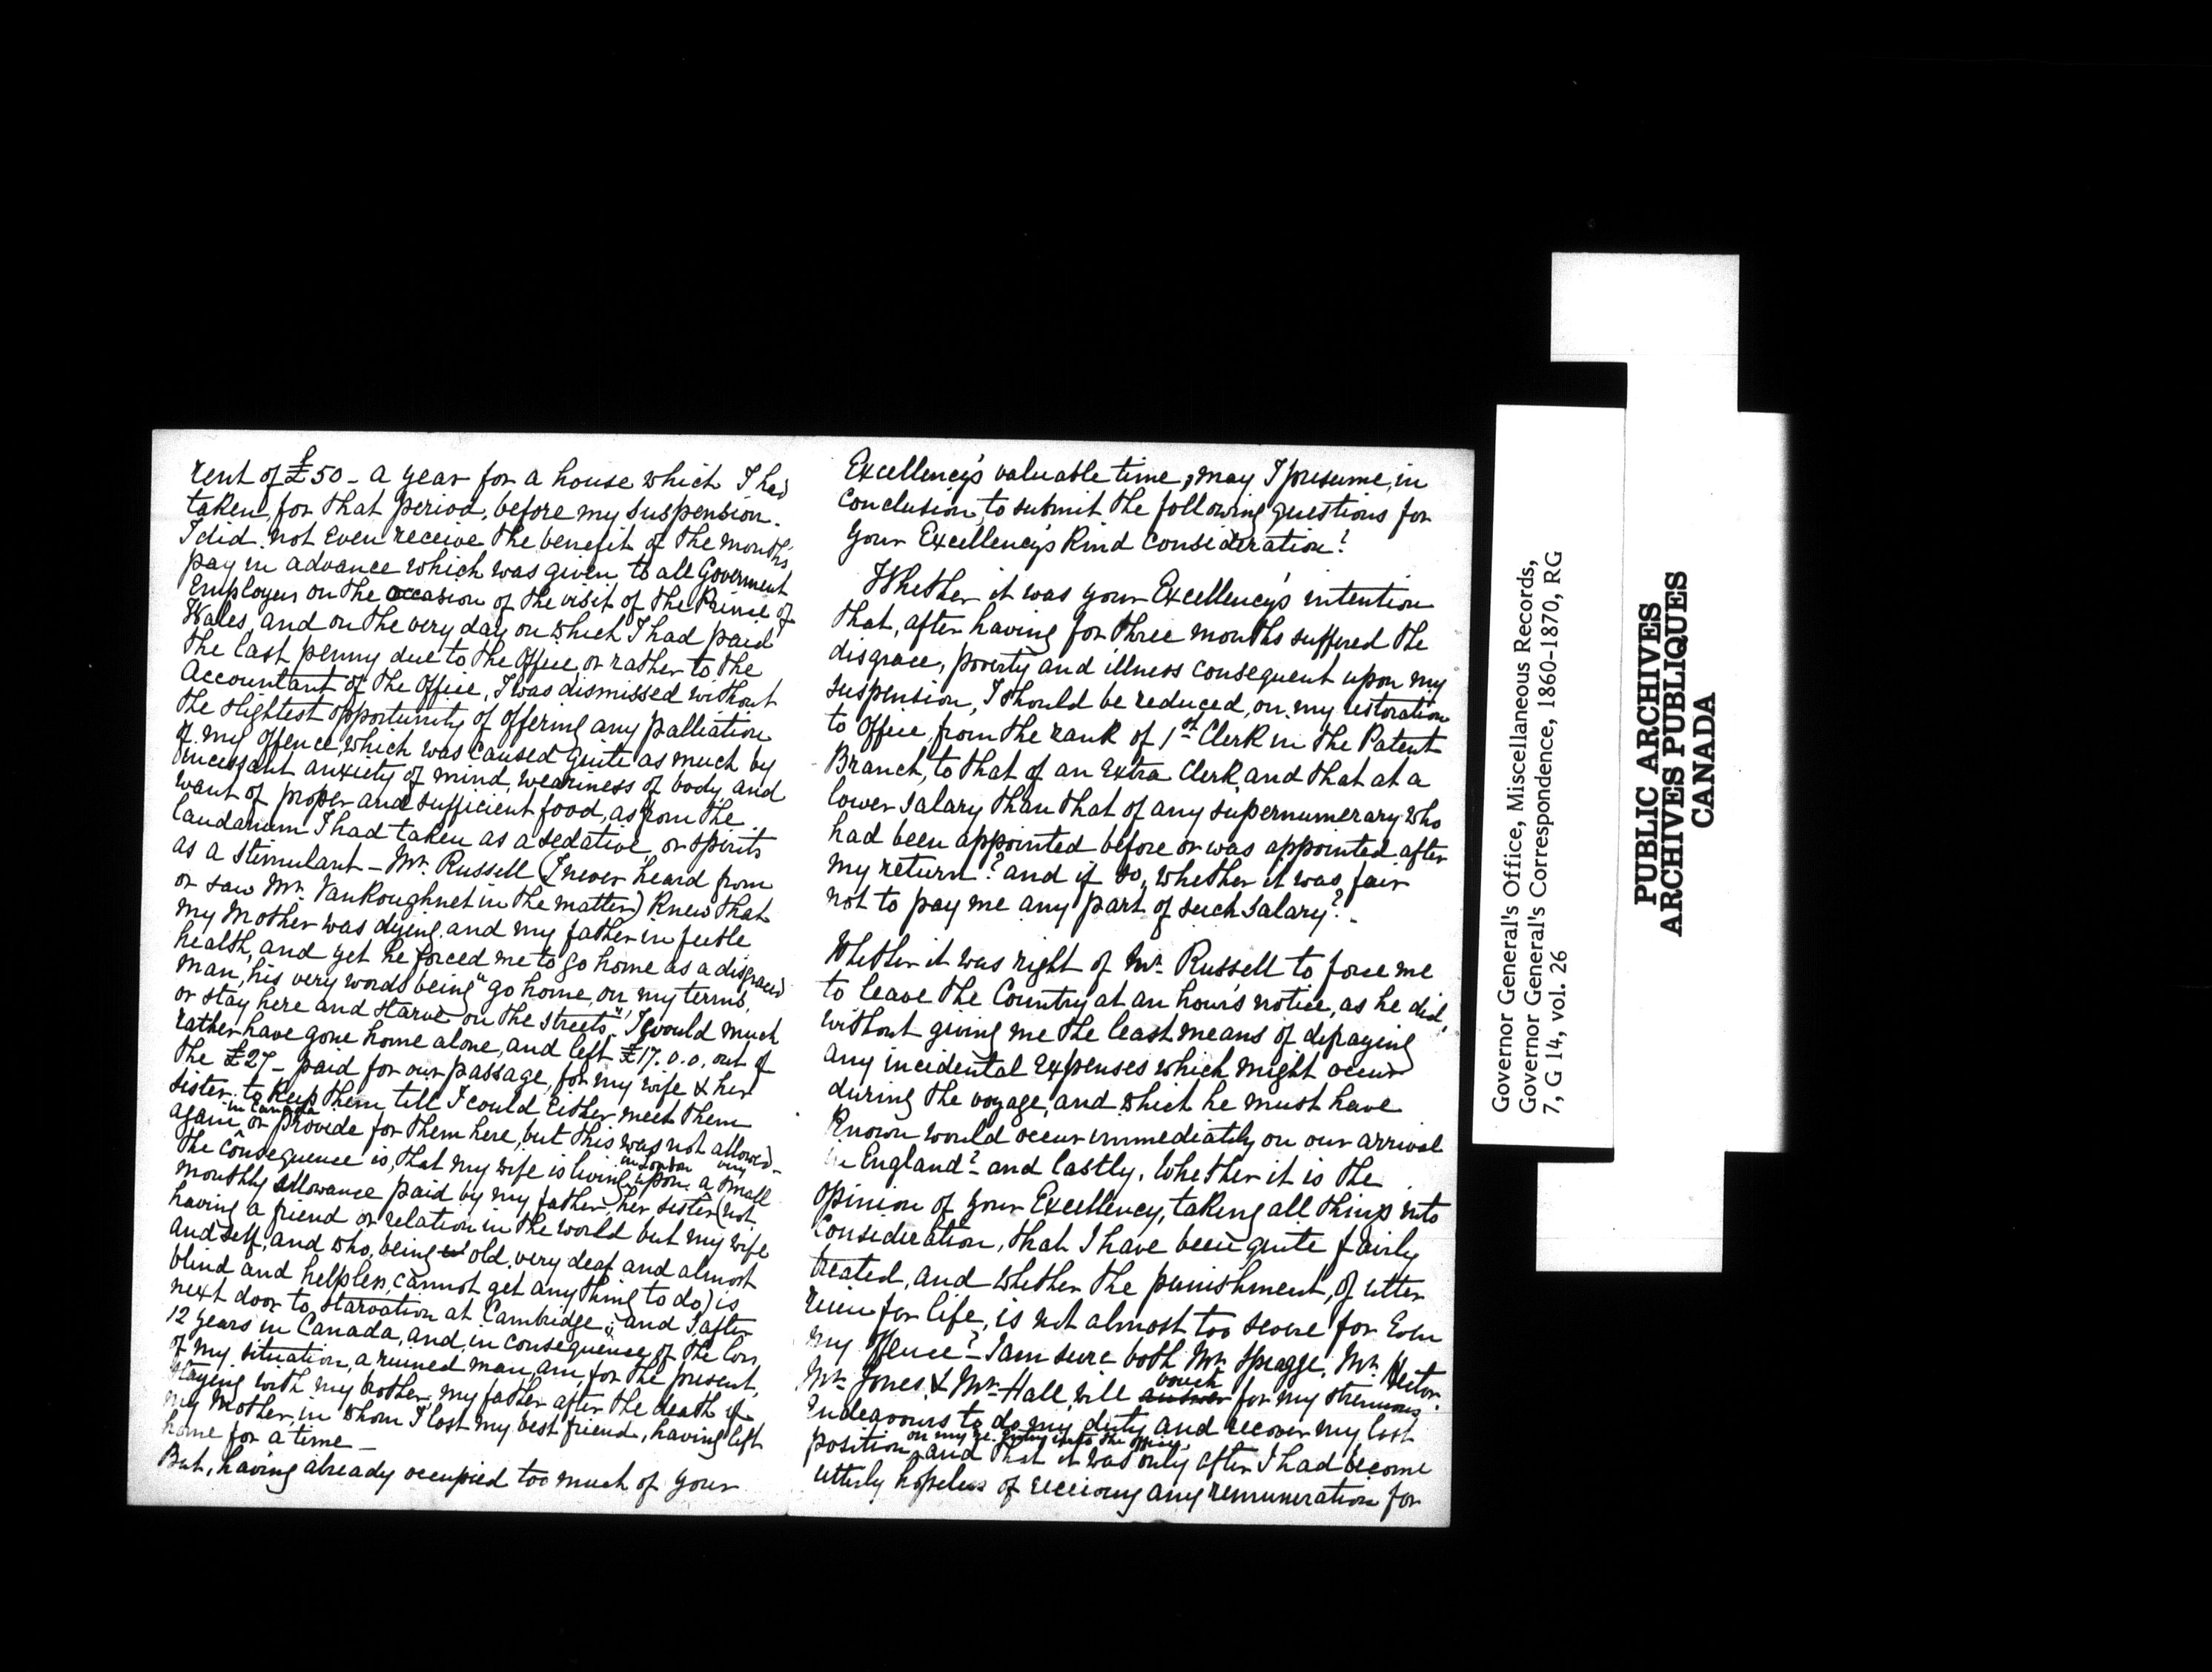 rent of £50 - a year for a house which I had
taken, for that period, before my suspension.
I did not even receive the benefit of the month's
pay in advance which was given to all Goverment
Employees on the occasion of the visit of the Prince of
Wales, and on the very day on which I had paid
the last penny due to the Office, or rather to the
Accountant of the Office, I was dismissed without
the slightest opportunity of offering any palliation
of my offence, which was caused quite as much by
incessant anxiety of mind, weariness of body, and
want of proper and sufficient food, as from the
laudanum I had taken as a sedative, or spirits
as a stimulant - Mr. Russell (I never heard from
or saw Mr. VanKoughnet in the matter) Knew that
my Mother was dying, and my father in feeble
health, and yet he forced me to go home as a disgraced
man, his very words being "go home, on my terms,
or stay here and starve on the streets." I would much
rather have gone home alone, and left £17.0.0. out of
the £27 - paid for our passage, for my wife & her
sister, to Keep them till I could Either meet them
again in Canada or provide for them here, but this was not allowed -
The Consequence is, that my wife is living in London upon a very small
monthly allowance paid by my father, her sister (not
having a friend or relation in the world but my wife
and self, and who, being old, very deaf and almost
blind and helpless, cannot get any thing to do) is
next door to starvation at Cambridge; and I, after
12 years in Canada, and, in consequence of the loss
of my situation, a ruined man, am, for the present,
staying with my brother, my father after the death of
my Mother, in whom I lost my best friend, having left
home for a time -
But, having already occupied too much of your
Excellency's valuable time, may I presume, in
conclusion, to submit the following questions for
your Excellency's Kind consideration?
Whether it was your Excellency's intention
that, after having for three months suffered the
disgrace, poverty and illness consequent upon my
suspension, I should be reduced, on my restoration
to Office, from the rank of 1st Clerk in the Patent
Branch, to that of an Extra Clerk, and that at a
lower salary than that of any supernumerary who
had been appointed before or was appointed after
my return? and if so, whether it was fair
not to pay me any part of such salary? -
Whether it was right of Mr. Russell to force me
to leave the Country at an hour's notice, as he did,
without giving me the least means of defraying
any incidental expenses which might occur
during the voyage, and which he must have
Known would occur immediately on our arrival
in England? - and lastly, Whether it is the
opinion of your Excellency, taking all things into
Consideration, that I have been quite fairly
treated, and whether the punishment, of utter
ruin for life, is not almost too severe for Even
my offence? - I am sure both Mr. Spragge, Mr. Hector
Mr. Jones, & Mr. Hall, will answer vouch for my strenuous
Endeavours to do my duty and recover my lost
position on my re-entry into the office, and that it was only after I had become
utterly hopeless of receiving any remuneration for
Governor General's Office, Miscellaneous Records,
Governor General's Correspondence, 1860-1870, RG
7, G 14, vol. 26
PUBLIC ARCHIVES
ARCHIVES PUBLIQUES
CANADA